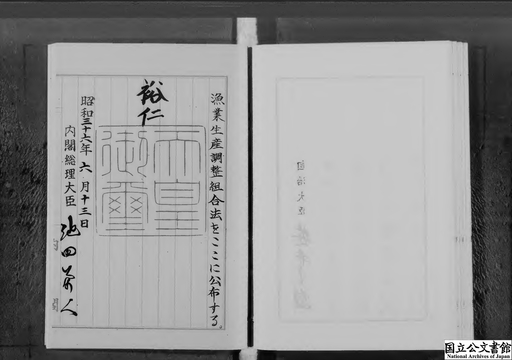 漁業生産調整組合法をここに公布する。
裕仁
天皇御璽
昭和三十六年六月十三日
内閣総理大臣 池田勇人
自治大臣
国立公文書館
National Archives of Japan